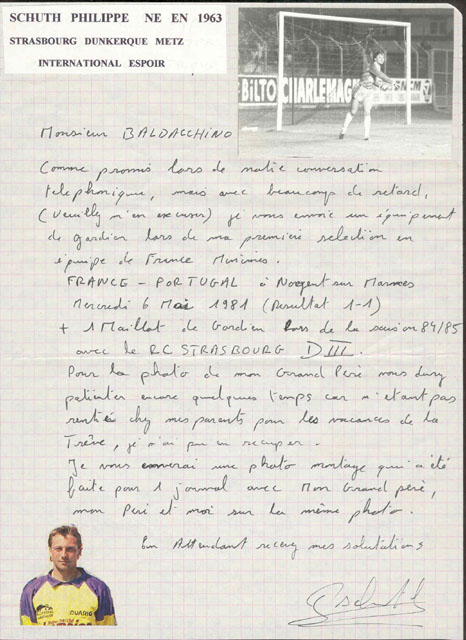 SCHUTH PHILIPPE NE EN 1963
STRASBOURG DUNKERQUE METZ
INTERNATIONAL ESPOIR
BILTO CHARLEMAGNE
Monsieur BALDACCHINO
Comme promis lors de notre conversation
telephonique, mais avec beaucoup de retard,
(veuilly m'en excuser) je vous envoie un équipement
de gardien lors de ma première selection en
équipe de France Minimes.
FRANCE - PORTUGAL à Nogent sur Marnes
Mercredi 6 Mai 1981 (Resultat 1-1)
+ 1 Maillot de Gardien lors de la saison 84/85
avec le RC STRASBOURG DIII.
Pour la photo de mon Grand Père vous devez
patienter encore quelques temps car n'étant pas
rentré chez mes parents pour les vacances de la
Trêve, je n'ai pu en recuperer.
Je vous enverai une photo montage qui a été
faite pour 1 journal avec Mon Grand père,
mon Père et moi sur la même photo.
En Attendant recevez mes salutations